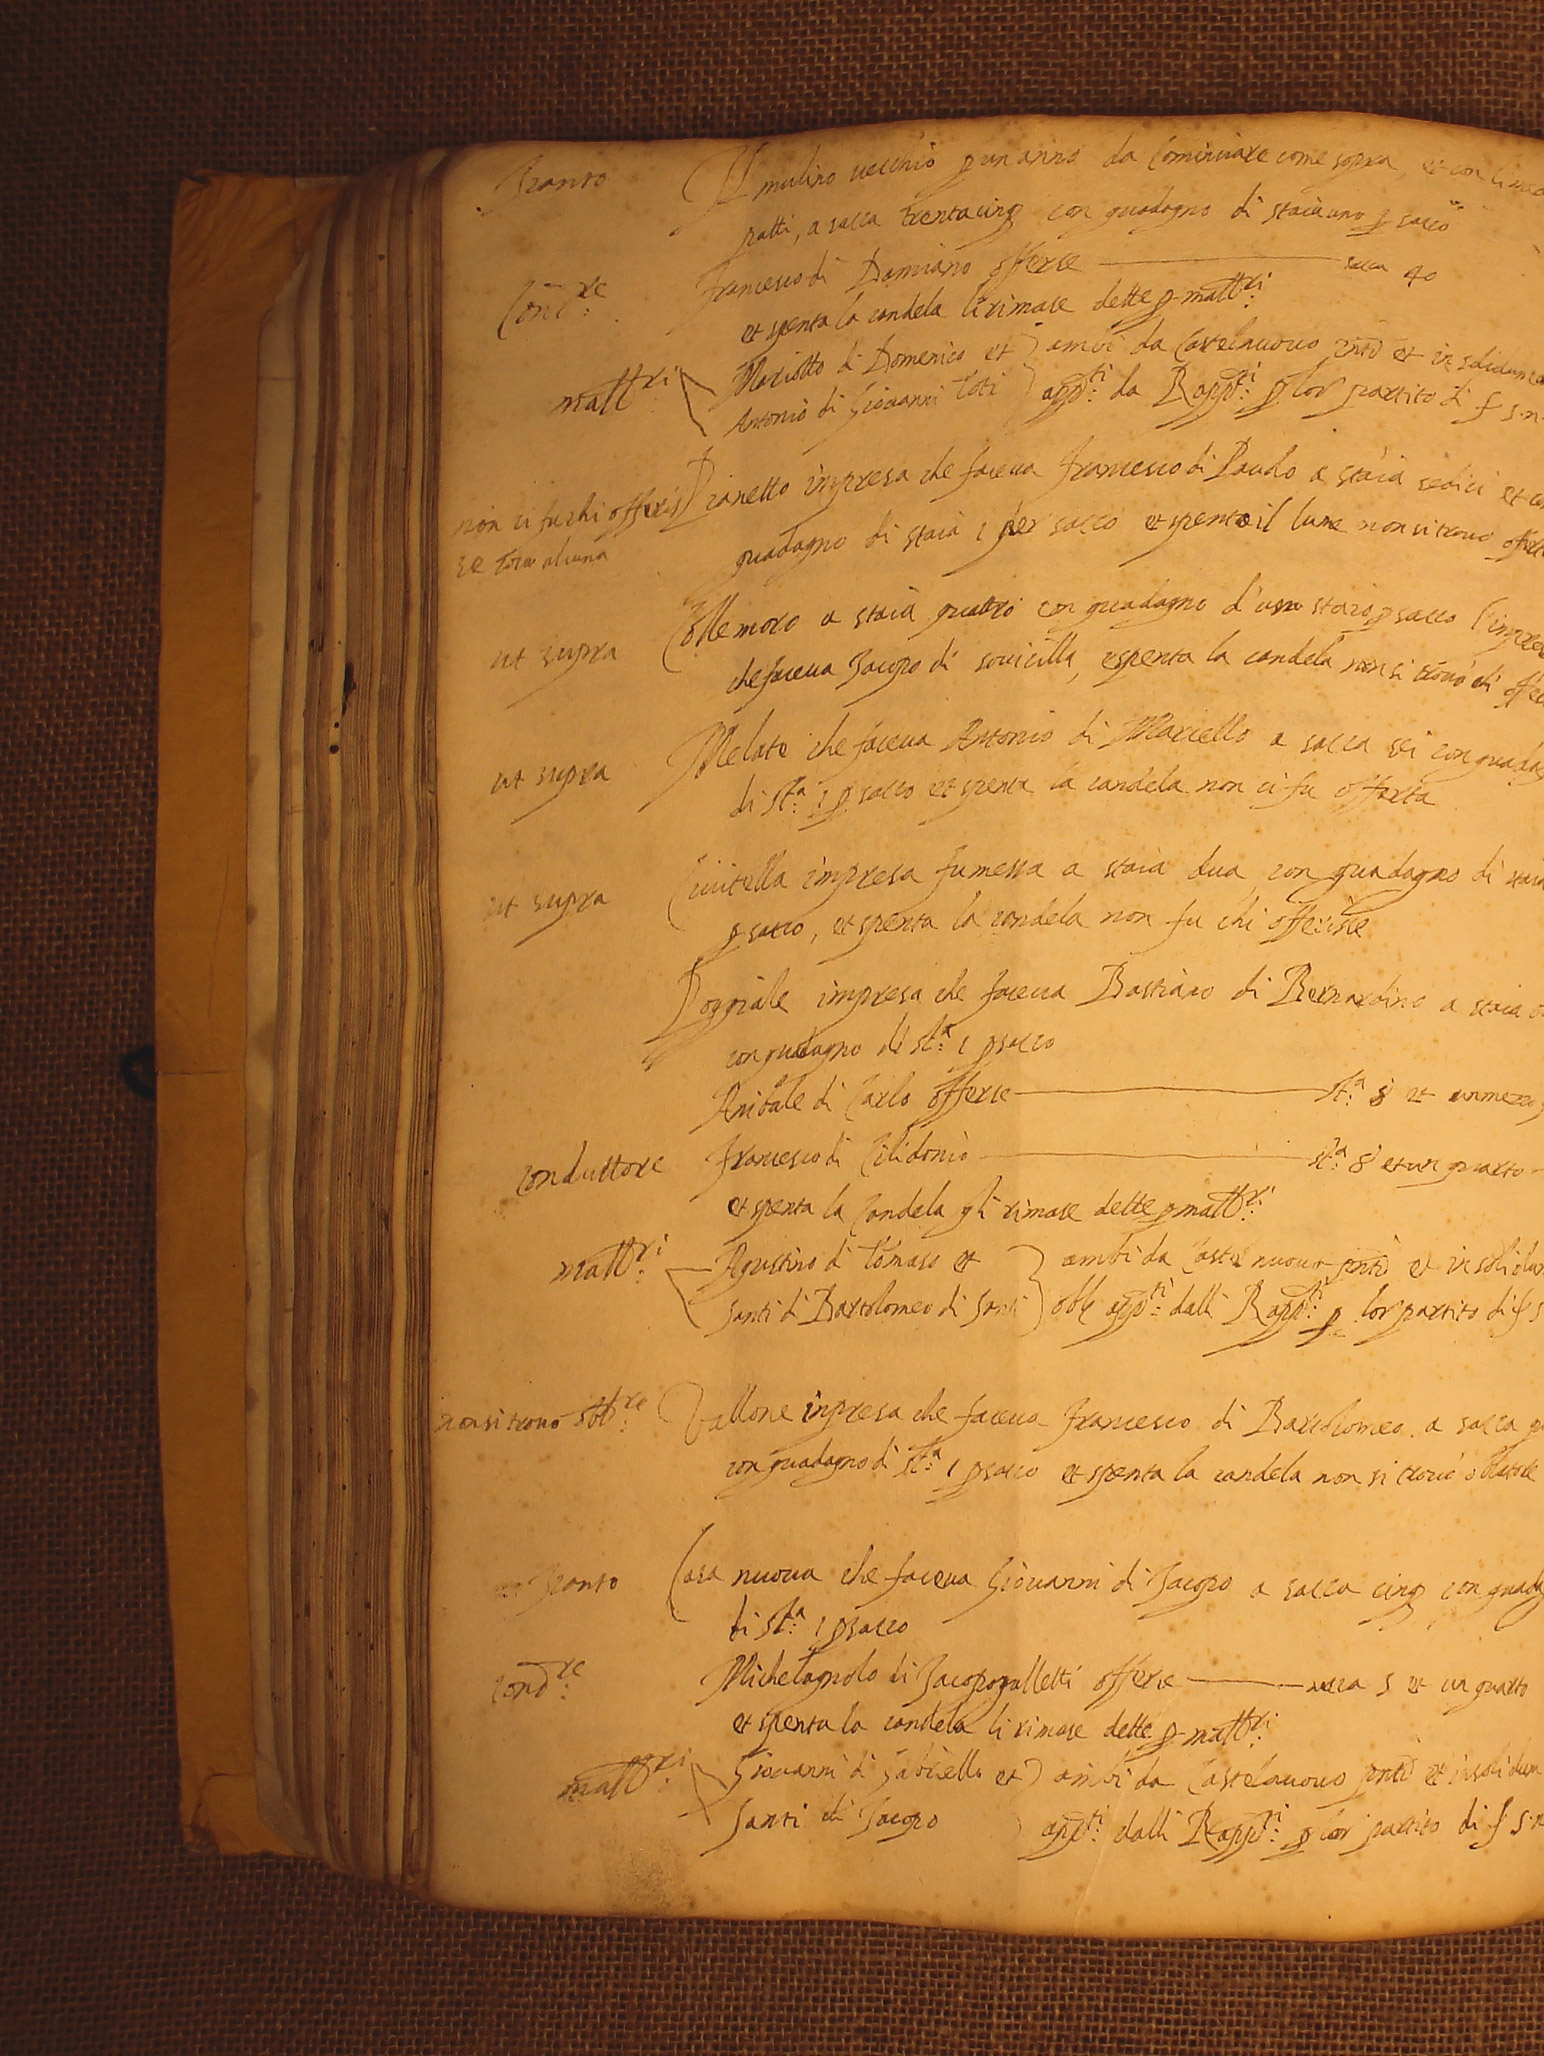 Il mulino vecchio p un anno da Cominciare come sopra, et con li
patti, a sacca trentacinq con guadagno di staia uno p sacco
Cond.re Francesco di Damiano offerse sacca 40
et spenta la candela li rimase dette p matt.ri
matt.ri Mariotto di Domenico et ambi da Castelnuovo pnti et in solidum
Antonio di Giovanni Toti app.ti da Rapp.ti p lor partito di f 5.n.
non ci fu chi offeris Pianetto impresa che faceva Francesco di Paulo a staia sedici et con
se cosa alcuna guadagno di staia 1 per sacco et spento il lume non si trovò
ut supra Colle moro a staia quattro con guadagno d'uno staio p sacco l'impresa
che faceva Jacopo di sovicilla, espenta la candela non si trovò chi
ut supra Melate che faceva Antonio di Mariello a sacca sei con
di st.a 1 p sacco et spenta la candela non ci fu offerta
ut supra Civitella impresa fu messa a staia dua con guadagno di staia
p sacco, et spenta la candela non fu chi offerisse
Poggiale impresa che faceva Bastiano di Bernardino a staia
con guadagno di st.a 1 p sacco
Anibale di Carlo offerse st.a 8 et un mezzo
conduttore Francesco di Cilidonio st.a 8 et un quarto
et spenta la Candela gli rimase dette p matt.ri
matt.ri Agustino di Tomaso et ambi da Castel nuovo pnti et in solidum
Santi di Bartolomeo di Santi obb app.ti dalli Rapp.ti p lor partito di f 5
non si trovo obb.re Vallone inpresa che faceva Francesco di Bartolomeo a sacca
con guadagno di st.a 1 p sacco et spenta la candela non si trovò oblatore
Casa nuova che faceva Giovanni di Jacopo a sacca cinq con
di st.a 1 p sacco
cond.re Michelagnolo di Jacopo galletti offerse sacca 5 et un quarto
et spenta la candela li rimase dette p matt.ri
matt.ri Giovanni di Gabriello et ambi da Castelnuovo pnti et in solidum
Santi di Jacopo app.ti dalli Rapp.ti p lor partito di f 5.n